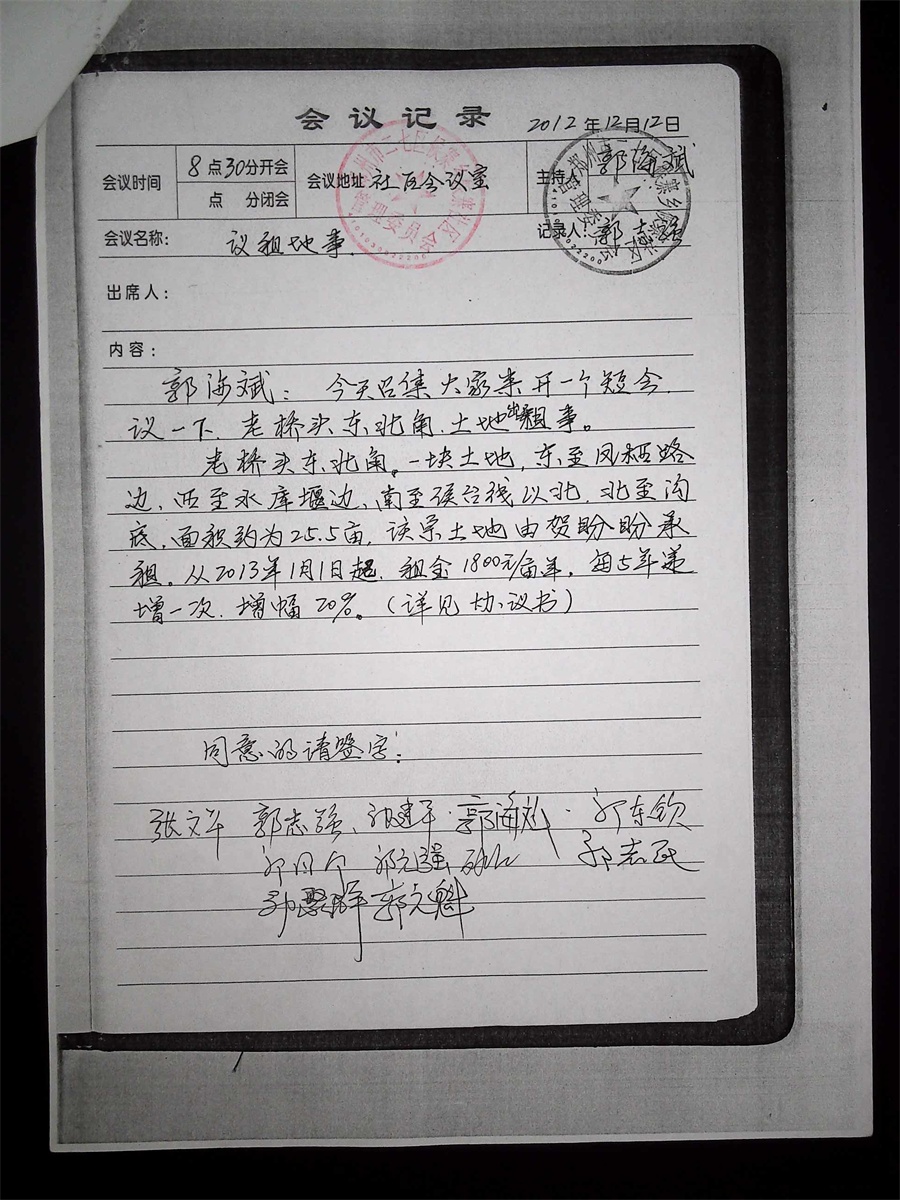 会议记录
2012年12月12日
会议时间 8点30分开会 会议地址 社区会议室 主持人 郭海斌
点 分闭会
会议名称: 议租地事. 记录人 郭志强
出席人:
内容:
郭海斌: 今天召集大家来开一个短会
议一下、老桥头东北角、土地出租事。
老桥头东北角。一块土地,东至凤栖路
边、西至水库堰边、南至侯台线以北、北至沟
底,面积约为25.5亩,该宗土地由贺盼盼承
租。从2013年1月1日起、租金1800元/亩年,每5年递
增一次、增幅20%。(详见协议书)
同意的请签字:
张文军 郭志强、 郭海斌 郭东钦
郭元强 郭志民
郭元魁